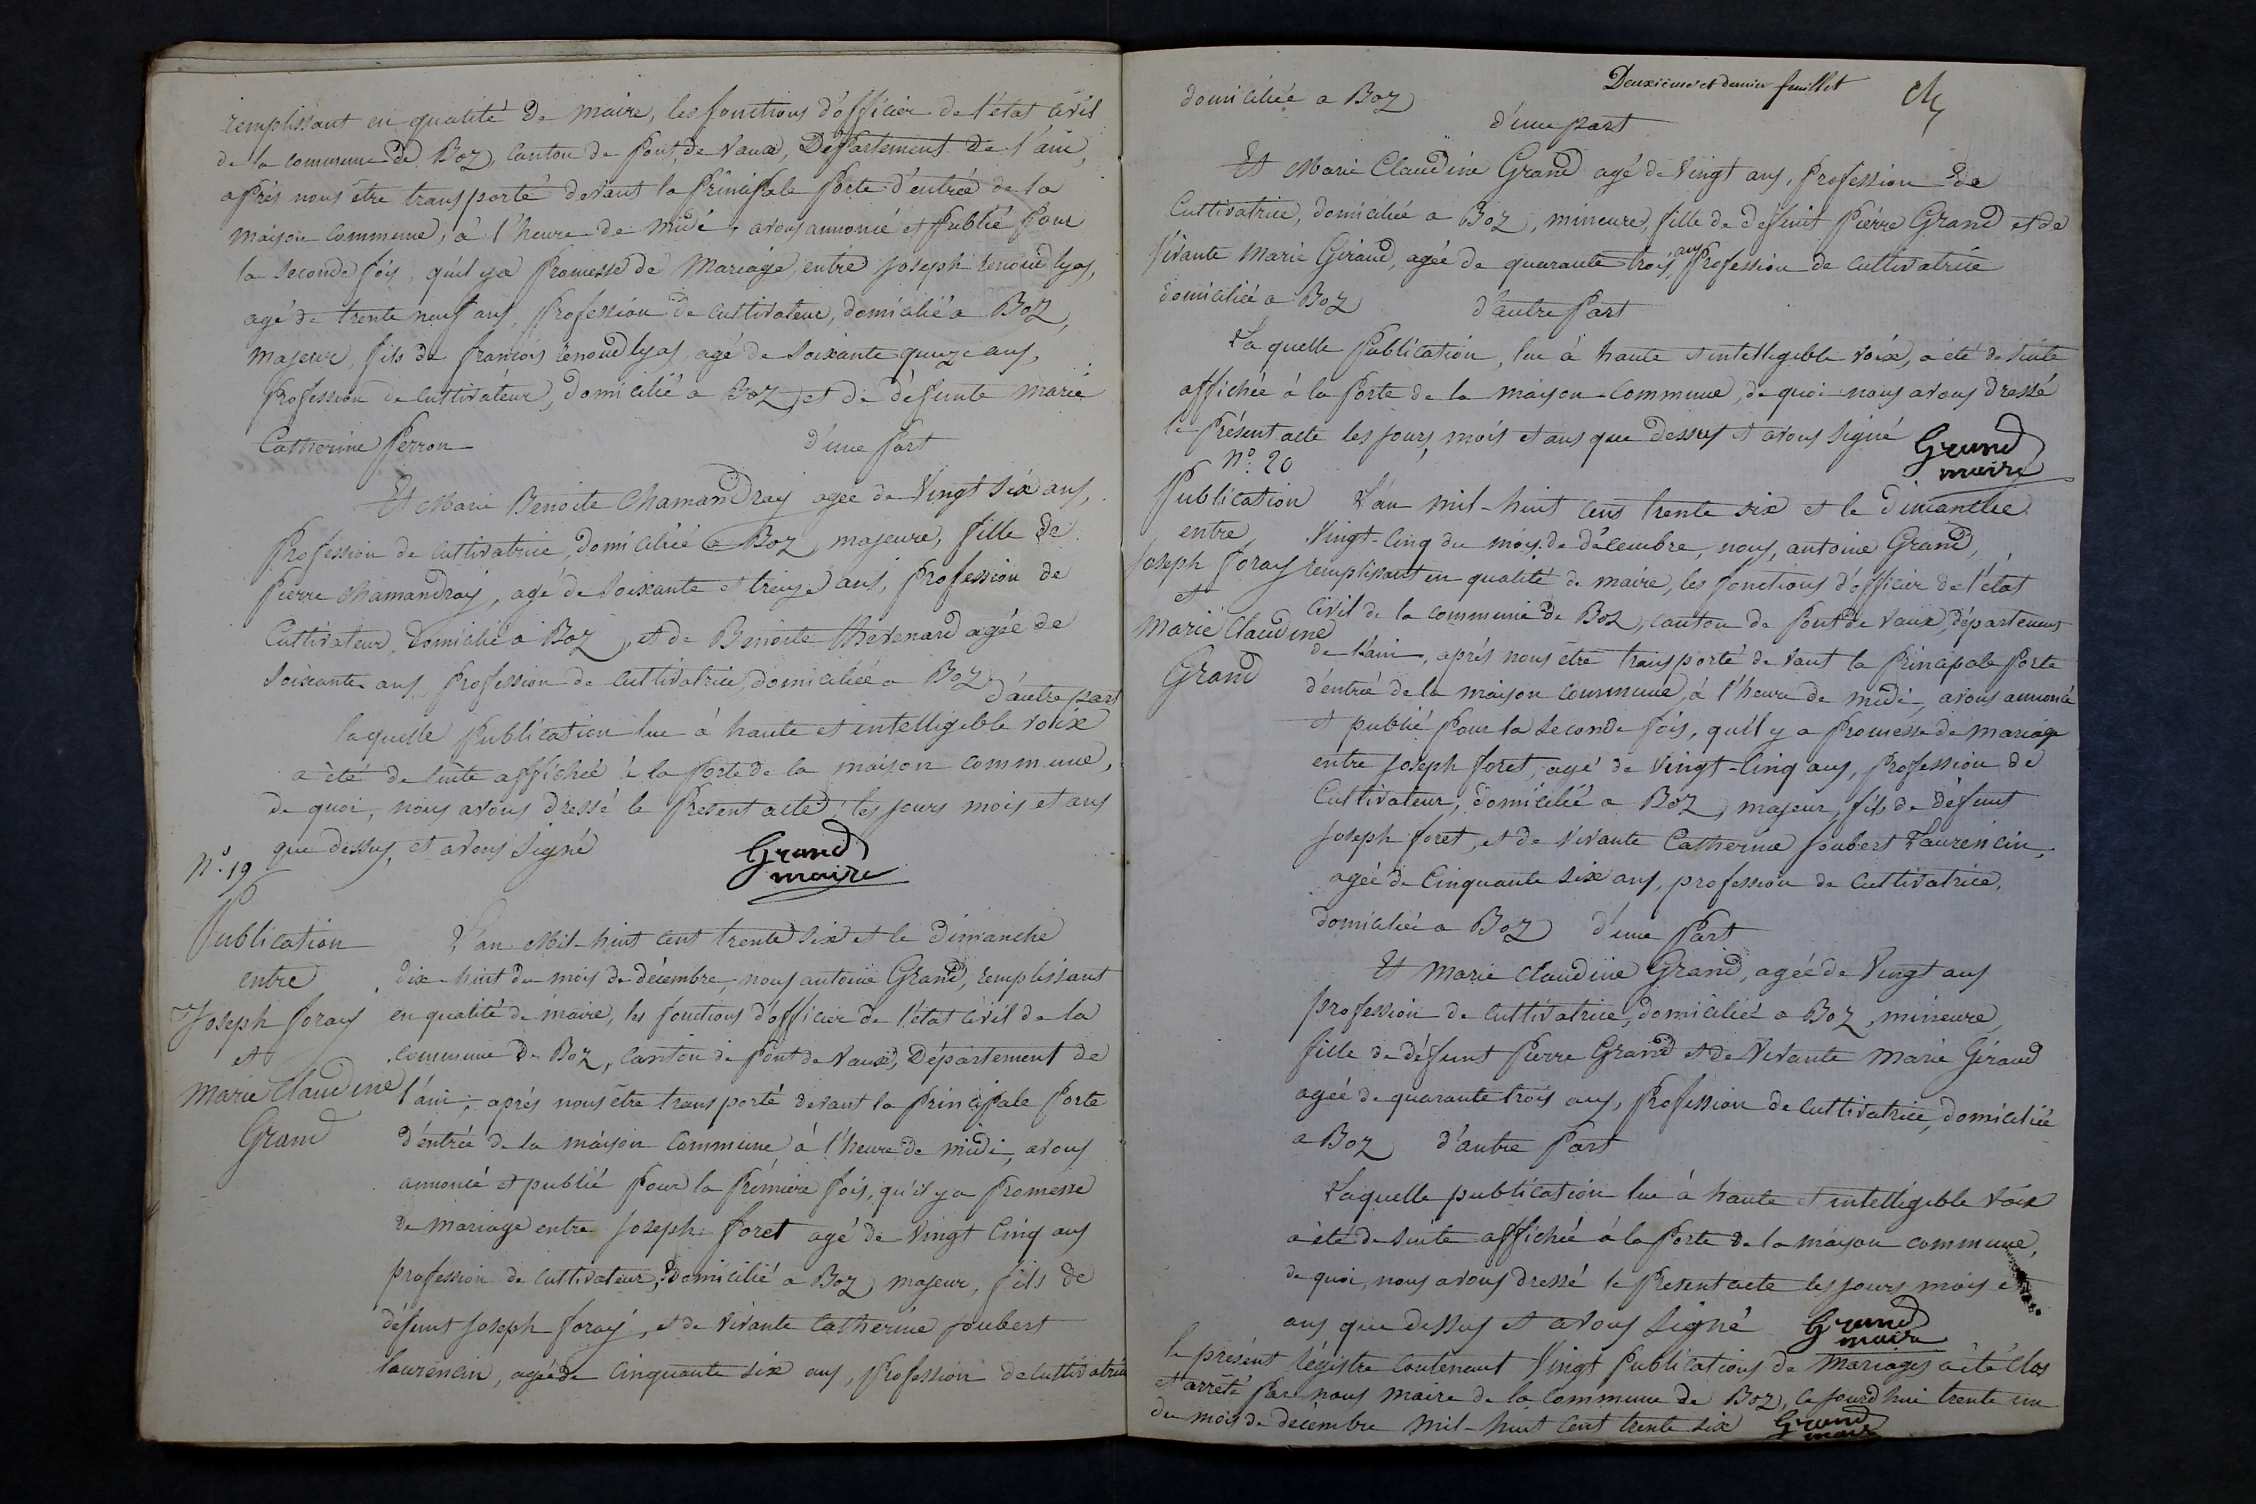 remplissant en qualité de maire, les fonctions d'officier de l'état civil
de la commune de Boz, canton de Pont de Vaux, Département de l'ain,
après nous être transporté devant la Principale Porte d'entrée de la
maison commune, à l'heure de midi, avons annoncé et Publié Pour
la seconde fois, qu'il y a Promesse de Mariage, entre Joseph renoud lyas,
agé de trente neuf ans, Profession de cultivateur, domicilié a Boz,
majeur, fils de françois renoud lyas, agé de soixante quinze ans,
Profession de cultivateur, domicilié a Boz, et de défunte marie
Catherine Perron d'une Part
Et Marie Benoite Chamandray agée de Vingt six ans,
Profession de cultivatrice, domiciliée a Boz, majeure, fille de
Pierre Chamandray, agé de soixante et treize ans, Profession de
Cultivateur, domicilié a Boz, et de Benoite thevenard agée de
soixante ans, Profession de cultivatrice, domiciliée a Boz
d'autre part
laquelle Publication lue à haute et intelligible voix
a été de suite affichée à la Porte de la maison commune,
de quoi, nous avons dressé le Present acte, les jours mois et ans
que dessus, et avons signé Grand
maire
N.º 19
Publication
entre
Joseph foray
et
Marie Claudine
Grand
L'an Mil-huit cent trente six et le dimanche
dix-huit du mois de décembre, nous antoine Grand, remplissant
en qualité de maire, les fonctions d'officier de l'état civil de la
commune de Boz, canton de Pont de Vaux, Département de
l'ain, après nous être transporté devant la Principale Porte
d'entrée de la maison Commune à l'heure de midi, avons
annoncé et publié Pour la Prémière fois, qu'il y a Promesse
de mariage entre Joseph foret agé de Vingt Cinq ans
profession de cultivateur, domicilié a Boz, majeur, fils de
défunt Joseph foray, et de vivante Catherine Joubert
laurencin, agée de Cinquante six ans, Profession de cultivatrice
Deuxième et dernier feuillet
domiciliée a Boz
d'une part
Et Marie Claudine Grand agé de Vingt ans, Profession de
Cultivatrice, domiciliée a Boz, mineure, fille de défunt Pierre Grand et de
vivante Marie Giraud, agée de quarante trois ans Profession de cultivatrice
domiciliée a Boz d'autre Part
La quelle Publication, lue à haute et intelligible voix, a été de suite
affichée à la Porte de la maison-commune, de quoi nous avons dressé
le Présent acte les jours, mois et ans que dessus et avons signé Grand
maire
N.º 20
Publication
entre
Joseph foray
et
Marie Claudine
Grand
L'an mil-huit cent trente six et le dimanche
Vingt-Cinq du mois de décembre, nous, antoine Grand,
remplissant en qualité de maire, les fonctions d'officier de l'état
Civil de la commune de Boz, canton de Pont de Vaux, département
de l'ain, après nous être transporté devant la Principale Porte
d'entrée de la maison commune, à l'heure de midi, avons annoncé
et publié Pour la seconde fois, qu'il y a Promesse de mariage
entre Joseph foret, agé de Vingt-Cinq ans, Profession de
Cultivateur, domicilié a Boz, majeur, fils de défunt
Joseph foret, et de vivante Catherine Joubert Laurencin,
agée de Cinquante six ans, profession de Cultivatrice,
domiciliée a Boz d'une Part
Et Marie Claudine Grand, agée de Vingt ans
profession de cultivatrice, domiciliée a Boz, mineure
fille de défunt Pierre Grand et de Vivante Marie Giraud
agée de quarante trois ans, Profession de cultivatrice, domiciliée
a Boz d'autre Part
Laquelle publication lue à haute et intelligible voix
a été de suite affichée à la Porte de la maison commune,
de quoi, nous avons dressé le Present acte les jours mois et
ans que dessus et avons signé Grand
maire
le présent régistre contenant Vingt Publications de Mariages a été clos
et arrêté Par nous maire de la commune de Boz, ce jourd'hui trente un
du mois de decembre mil-huit cent trente six Grand
maire